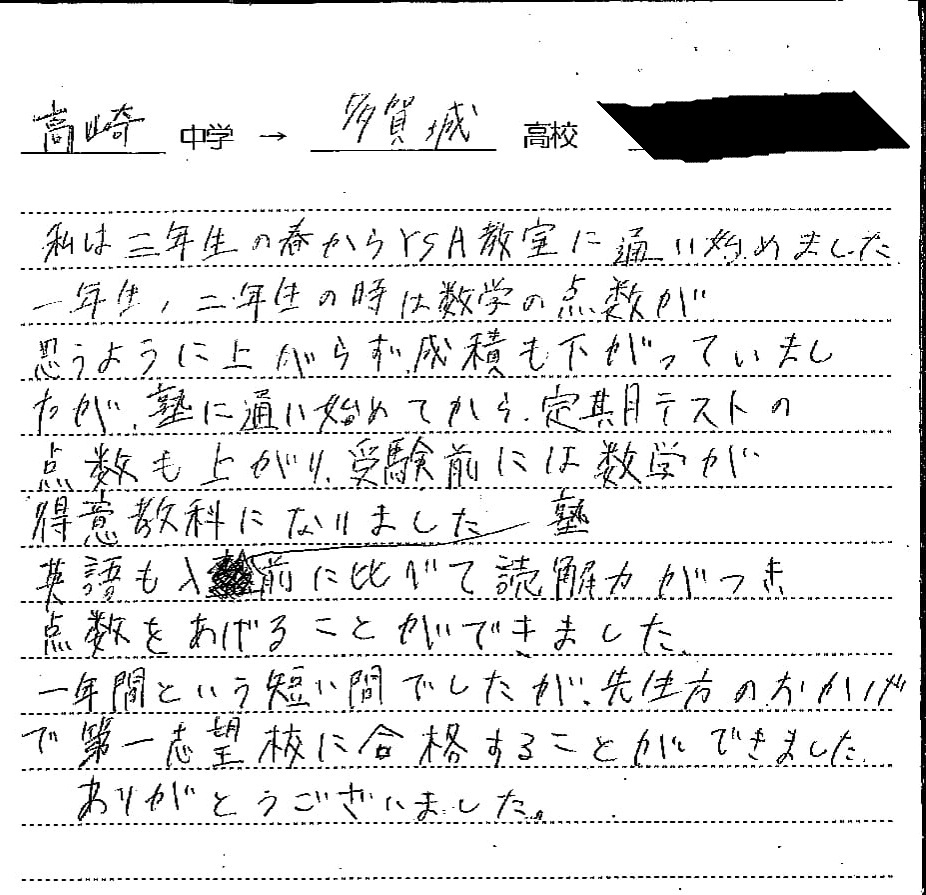 高崎 中学 → 多賀城 高校
私は三年生の春からYSA教室に通い始めました
一年生、二年生の時は数学の点数が
思うように上がらず、成績も下がっていまし
たが、塾に通い始めてから、定期テストの
点数も上がり、受験前には数学が
得意教科になりました
英語も入塾前に比べて読解力がつき
点数をあげることができました。
一年間という短い間でしたが、先生方のおかげ
で第一志望校に合格することができました。
ありがとうございました。